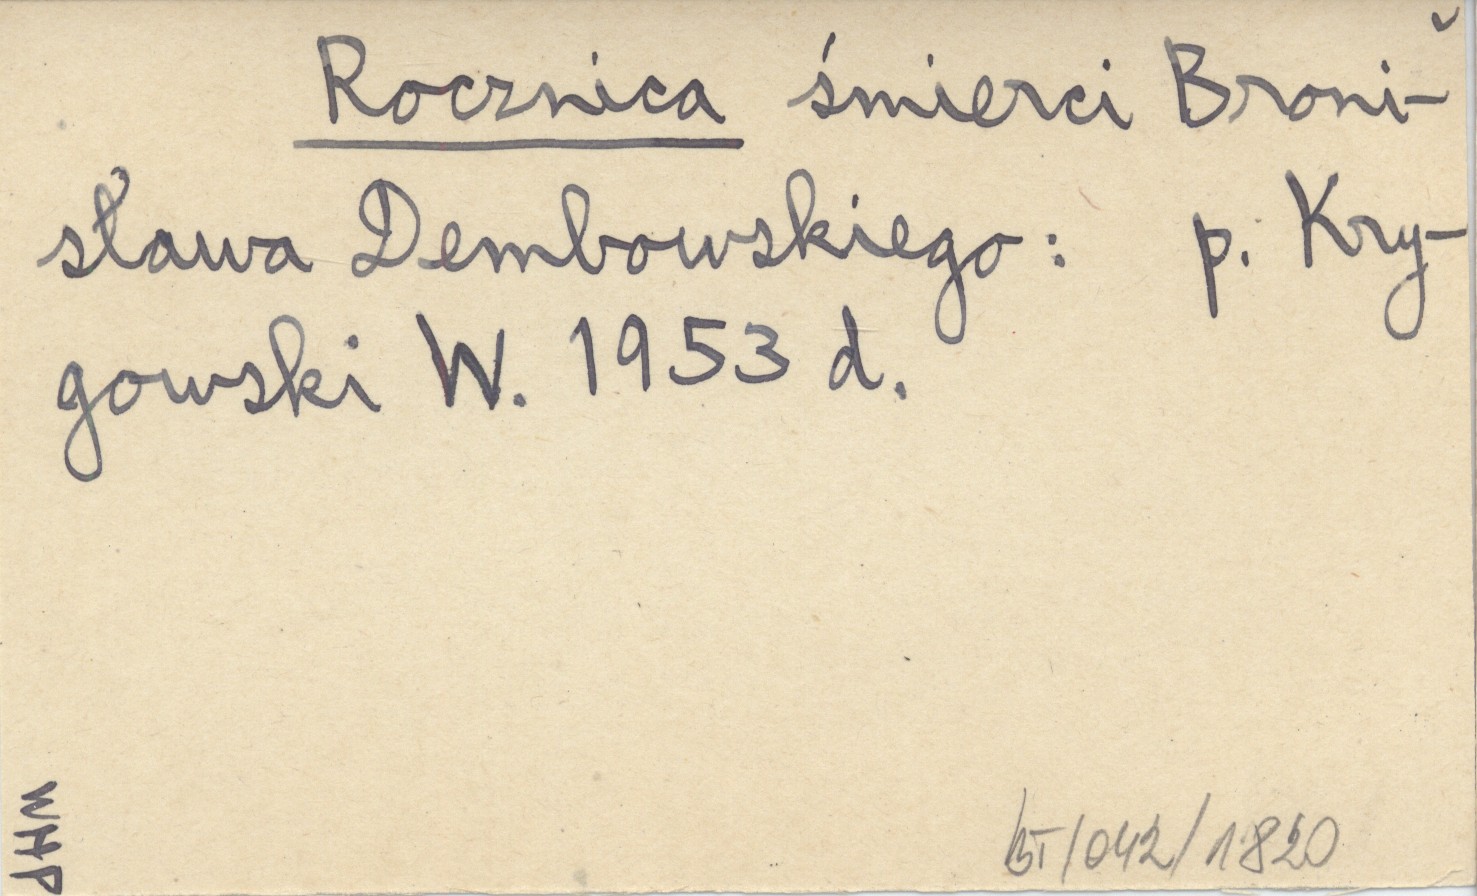 Rocznica śmierci Broni-
sława Dembowskiego: p. Kry-
gowski W. 1953 d.
WHP
BT/042/1820